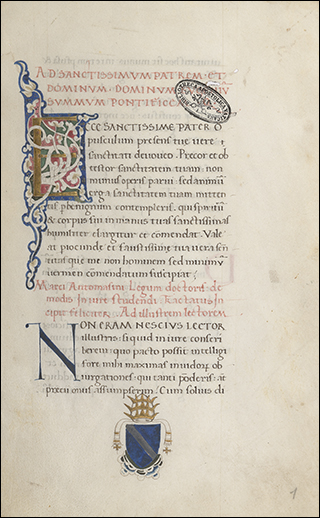 AD SANCTISSIMUM PATREM ET
DOMINUM DOMINUM
SUMMUM PONTIFICEM
ECCE SANCTISSIME PATER O
pusculum presens tue vere
sanctitati devoveo. Precor et ob
testor sanctitatem tuam non
muneris operis parvi sed animi
erga sanctitatem tuam mitten
tis benignum contempleris. qui spiritum
& corpus suum in manus tuas sanctissimas
humiliter elargitur et comendat. Vale
at iocunde et faustissime tua vera san
titas que me non hominem sed minimum
vermem comendatum suscipiat:
Marci Antomasini Legum doctoris de
modis in iure studendi Tractatus In
cipit feliciter. Ad illustrem lectorem
NON ERAM NESCIUS LECTOR
illustris: si quid in iure conscri
berem quo pacto possit intelligi
fore mihi maximas invidorum ob
iurgationes. qui tanti ponderis at
precii onus assumpserim. Cum solius di
1